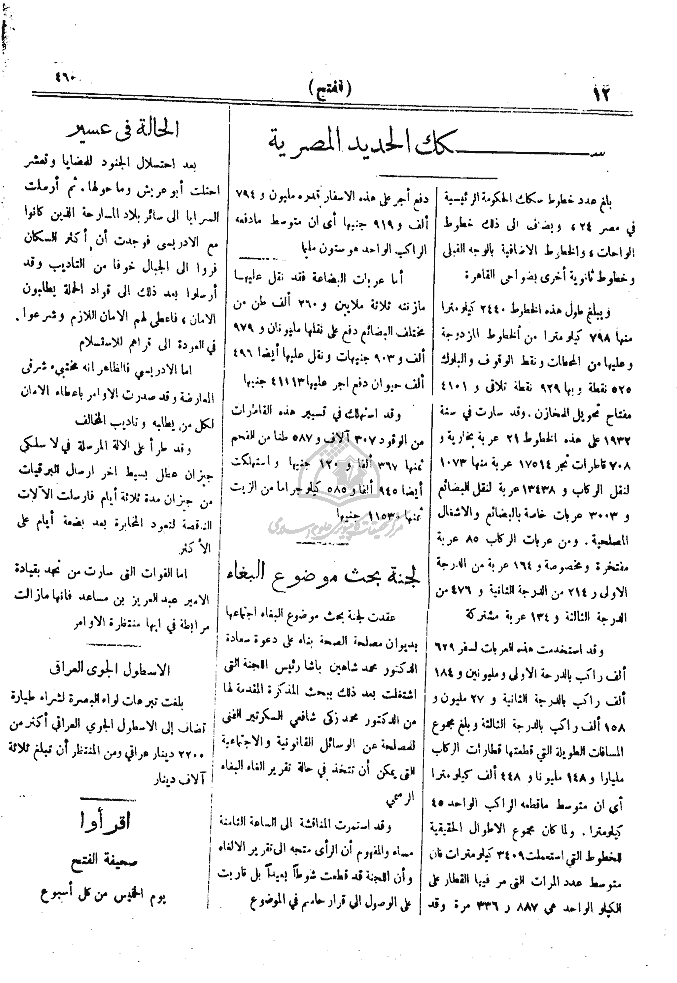 ١٢
(الفتح)
٤٦٠
سكك الحديد المصرية
بلغ عدد خطوط سكك الحكومة الرئيسية
في مصر ٢٤ و يضاف الى ذلك خطوط
الواحات والخطوط الاضافية بالوجه القبلي
وخطوط ثانوية أخرى بضواحى القاهرة
ويبلغ طول هذه الخطوط ٢٤٤٠ كيلومترا
منها ٧٩٨ كيلومترا من الخطوط المزدوجة
وعليها من المحطات ونقط الوقوف والبلوك
٥٢٥ نقطة وبها ٩٢٩ نقطة تلاقى و ٤١٠١
مفتاح تحويل للمخازن. وقد سارت في سنة
١٩٣٢ على هذه الخطوط ٢١ عربة بخارية و
٧٠٨ قاطرات تجر ١٧٥١٤ عربة منها ١٠٧٣
لنقل الركاب و ١٣٤٣٨ عربة لنقل البضائع
و ٣٠٠٣ عربات خاصة بالبضائع والاشغال
المصلحية. ومن عربات الركاب ٨٥ عربة
مفتخرة ومخصوصة و ١٦٤ عربة من الدرجة
الاولى و ٢١٤ من الدرجة الثانية و ٤٧٦ من
الدرجة الثالثة و ١٣٤ عربة مشتركة
وقد استخدمت هذه العربات لسفر ٦٢٩
ألف راكب بالدرجة الاولى ومليونين و ١٨٤
ألف راكب بالدرجة الثانية و ٢٧ مليون و
١٥٨ ألف راكب بالدرجة الثالثة وبلغ مجموع
المسافات الطويلة التي قطعتها قطارات الركاب
مليارا و ١٤٨ مليونا و ٤٤٨ ألف كيلومترا
أي ان متوسط ماقطعه الراكب الواحد ٤٥
كيلومترا. ولما كان مجموع الاطوال الحقيقية
للخطوط التي استعملت ٣٤٠٩ كيلومترات فان
متوسط عدد المرات التي مر فيها القطار على
الكيلو الواحد هي ٨٨٧ ر ٣٣٦ مرة وقد
دفع أجر على هذه الاسفار قدره مليون و ٧٩٤
ألف و ٩١٩ جنيها أى ان متوسط مادفعه
الراكب الواحد هو ستون مليما
أما عربات البضاعة فقد نقل عليها
مازنته ثلاثة ملايين و ٢٦٠ ألف طن من
مختلف البضائع دفع على نقلها مليونان و ٩٧٩
ألف و ٩٠٣ جنيهات ونقل عليها أيضا ٤٩٦
ألف حيوان دفع اجر عليها ٤١١١٣ جنيها
وقد استهلك في تسيير هذه القاطرات
من الوقود ٣٠٧ آلاف و ٥٨٧ طنا من الفحم
ثمنها ٣٦٧ ألفا و ١٢٠ جنيها و استهلكت
أيضا ٩٤٥ ألفا و ٥٨٥ كيلوجراما من الزيت
ثمنها ١١٥٣٠ جنيها
لجنة بحث موضوع البغاء
عقدت لجنة بحث موضوع البغاء اجتماعها
بديوان مصلحة الصحة بناء على دعوة سعادة
الدكتور محمد شاهين باشا رئيس اللجنة التى
اشتغلت بعد ذلك ببحث المذكرة المقدمة لها
من الدكتور محمد زكى شافعى السكرتير الفنى
للمصلحة عن الوسائل القانونية والاجتماعية
التى يمكن أن تتخذ في حالة تقرير الغاء البغاء
الرسمي
وقد استمرت المناقشة الى الساعة الثامنة
مساء والمفهوم أن الرأى متجه الى تقرير الالغاء
وأن اللجنة قد قطعت شوطاً بعيداً بل قاربت
على الوصول الى قرار حاسم في الموضوع
الحالة فى عسير
بعد احتسلال الجنود للمضايا وتعشر
احتلت أبو عريش وما حولها. ثم أرسلت
السرايا الى سائر بلاد المسارحة الذين كانوا
مع الادريسى فوجدت أن أكثر السكان
فروا الى الجبال خوفا من التاديب وقد
أرسلوا بعد ذلك الى قواد الحملة يطلبون
الامان؛ فاعطى لهم الامان اللازم وشرعوا.
في العودة الى قراهم للاستسلام
اما الادريسى فالظاهر انه مختبىء شرقى
العارضة وقد صدرت الاوامر باعطاء الامان
لكل من يطلبه وتاديب المخالف
وقد طرأ على الالة المرسلة في لا سلكي
جيزان عطل بسيط اخر ارسال البرقيات
من جيزان مدة ثلاثة أيام فارسلت الآلات
الناقصة لتعود المخابرة بعد بضعة أيام على
الأكثر
اما القوات التى سارت من نجد بقيادة
الامير عبد العزيز بن مساعد فانها مازالت
مرابطة في ابها منتظرة الاوامر
الاسطول الجوى العراقى
بلغت تبرعات لواء البصرة لشراء طيارة
تضاف إلى الاسطول الجوي العراقي أكثر من
٢٢٠٠ دينار عراقي ومن المنتظر أن تبلغ ثلاثة
آلاف دينار
اقرأوا
صحيفة الفتح
يوم الخميس من كل أسبوع